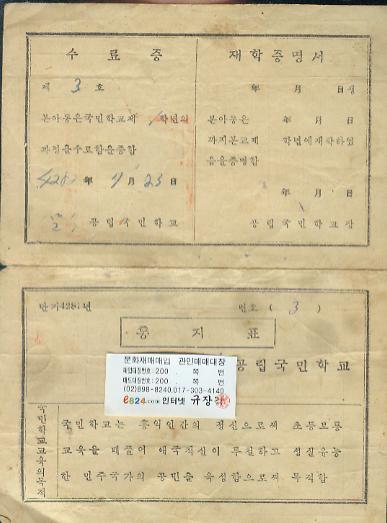 수료증
제 3 호
본아동은국민학교제 1 학년의
과정을수료함을증함
년 月 23 日
공립국민학교
재학증명서
년 月 日생
본아동은 年 月 日
까지본교제 학년에재학하였
음을증명함
年 月 日
공립국민학교장
단기428 년
번호 ( 3 )
통지표
공립국민학교
문화재매매업 관인매매대장
매입대장번호:200 . 쪽 번
매도대장번호:200 . 쪽 번
(02)898-8240,017-303-4140
e824.com 인터넷 규장각
국민학교교육의목적
국민학교는 홍익인간의 정신으로써 초등보통
교육을 베풀어 애국적신이 투철하고 성실유능
한 민주국가의 공민을 육성함으로써 목적함